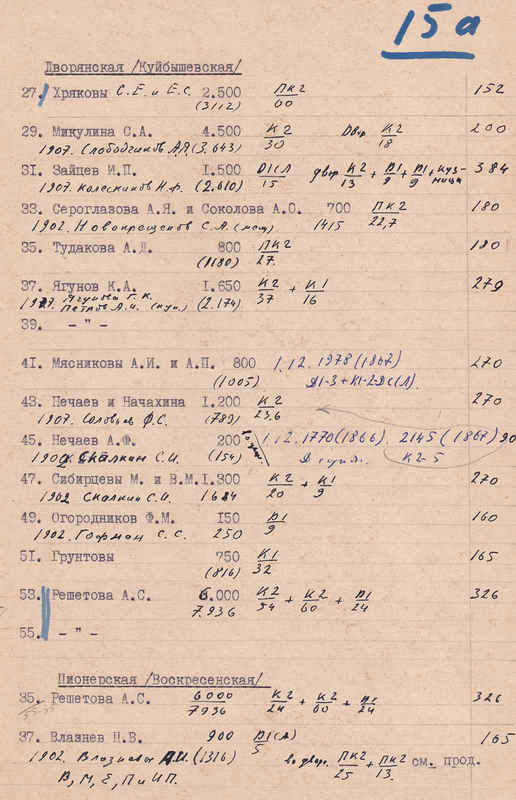 15а
Дворянская /Куйбышевская/
27. Хряковы С.Е. и Е.С. 2.500 ПК2 152
(3112) 60
29. Микулина С.А. 4.500 К2 Двор К2 200
1907. Слободчиков А.Я. (3.643) 30 18
31. Зайцев И.П. 1.500 Д1(Л) двор К2 + Д1 + Д1 + куз- 384
1907. Колесников Н.Ф. (2.610) 15 13 9 9 ница
33. Сероглазова А.Я. и Соколова А.О. 700 ПК2 180
1902. Новокрещенов С.А. (мещ) 1415 22,7
35. Тудакова А.Д. 800 ПК2 180
(1180) 27.
37. Ягунов К.А. 1.650 К2 + К1 279
Ягунова Г.К. 37 16
Петров А.И. (куп.) (2.174)
39. - " -
41. Мясниковы А.И. и А.П. 800 1.12. 1978 (1867) 270
(1005) Д1-3 + К1-2-ДС(Л).
43. Нечаев и Начахина 1.200 К2 270
1907. Соловьев Ф.С. (789) 23,6
45. Нечаев А.Ф. 200 1.12. 1770 (1866). 2145 (1867) 90
1902 Скалкин С.И. (154) К2-5
47. Сибирцевы М. и В.М. 1.300 К2 + К1 270
1902 Скалкин С.И. 1684 20 9
49. Огородников Ф.М. 150 Д1 160
1902. Гофман С.С. 250 9
51. Грунтовы 750 К1 165
(816) 32
53. Решетова А.С. 6.000 К2 + К2 + Д1 326
7.936 54 60 24
55. - " -
Пионерская /Воскресенская/
35. Решетова А.С. 6000 К2 + К2 + Д1 326
7936 24 60 24
37. Влазнев Н.В. 900 Д1(Л) 165
5
1902. Влазнева А.И. (1316) во дворе ПК2 + ПК2 см. прод.
В, М, Е, П и И П. 25 13.